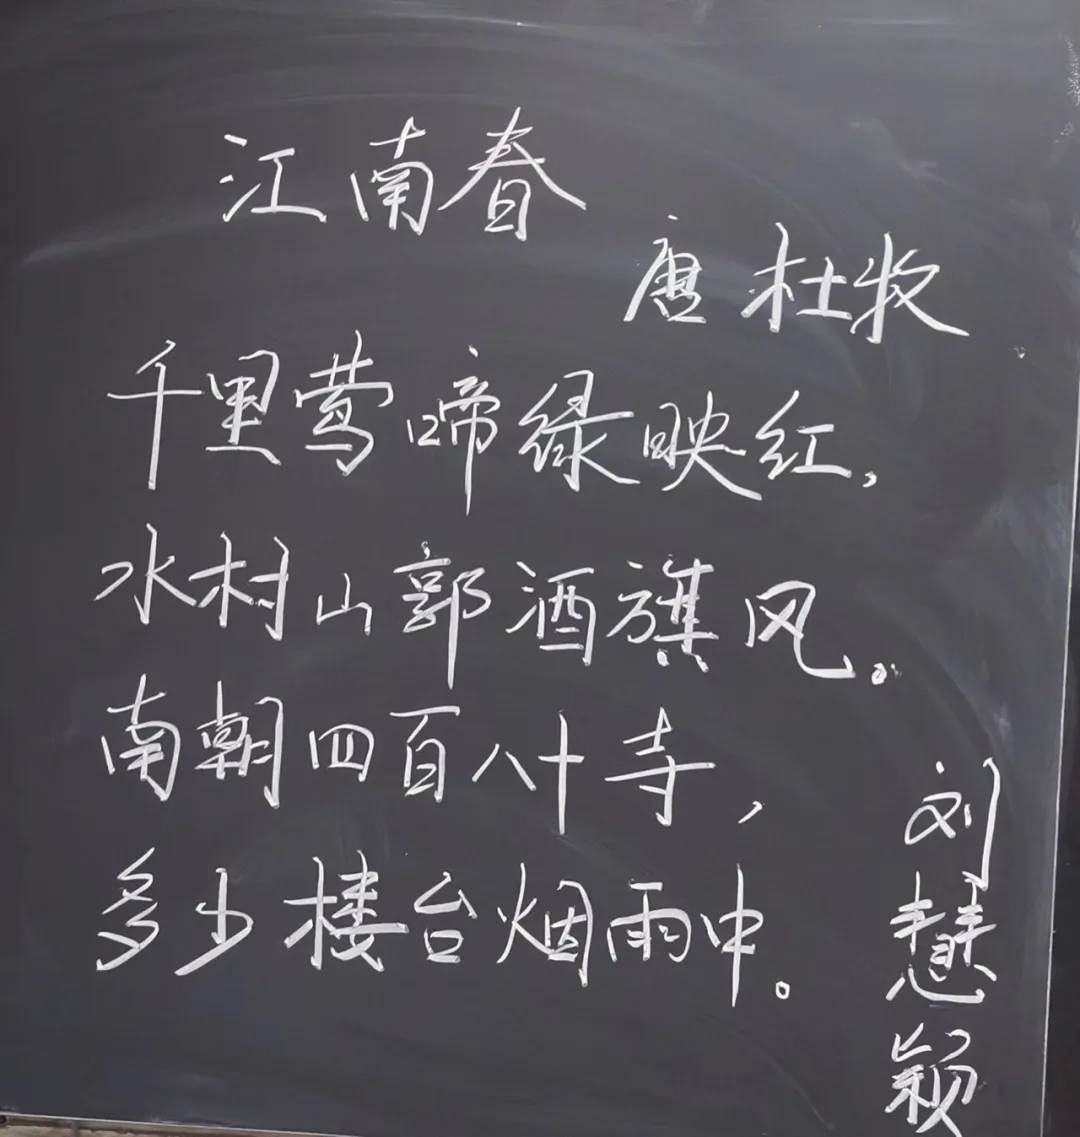 江南春
唐 杜牧
千里莺啼绿映红，
水村山郭酒旗风。
南朝四百八十寺，
多少楼台烟雨中。
刘慧颖